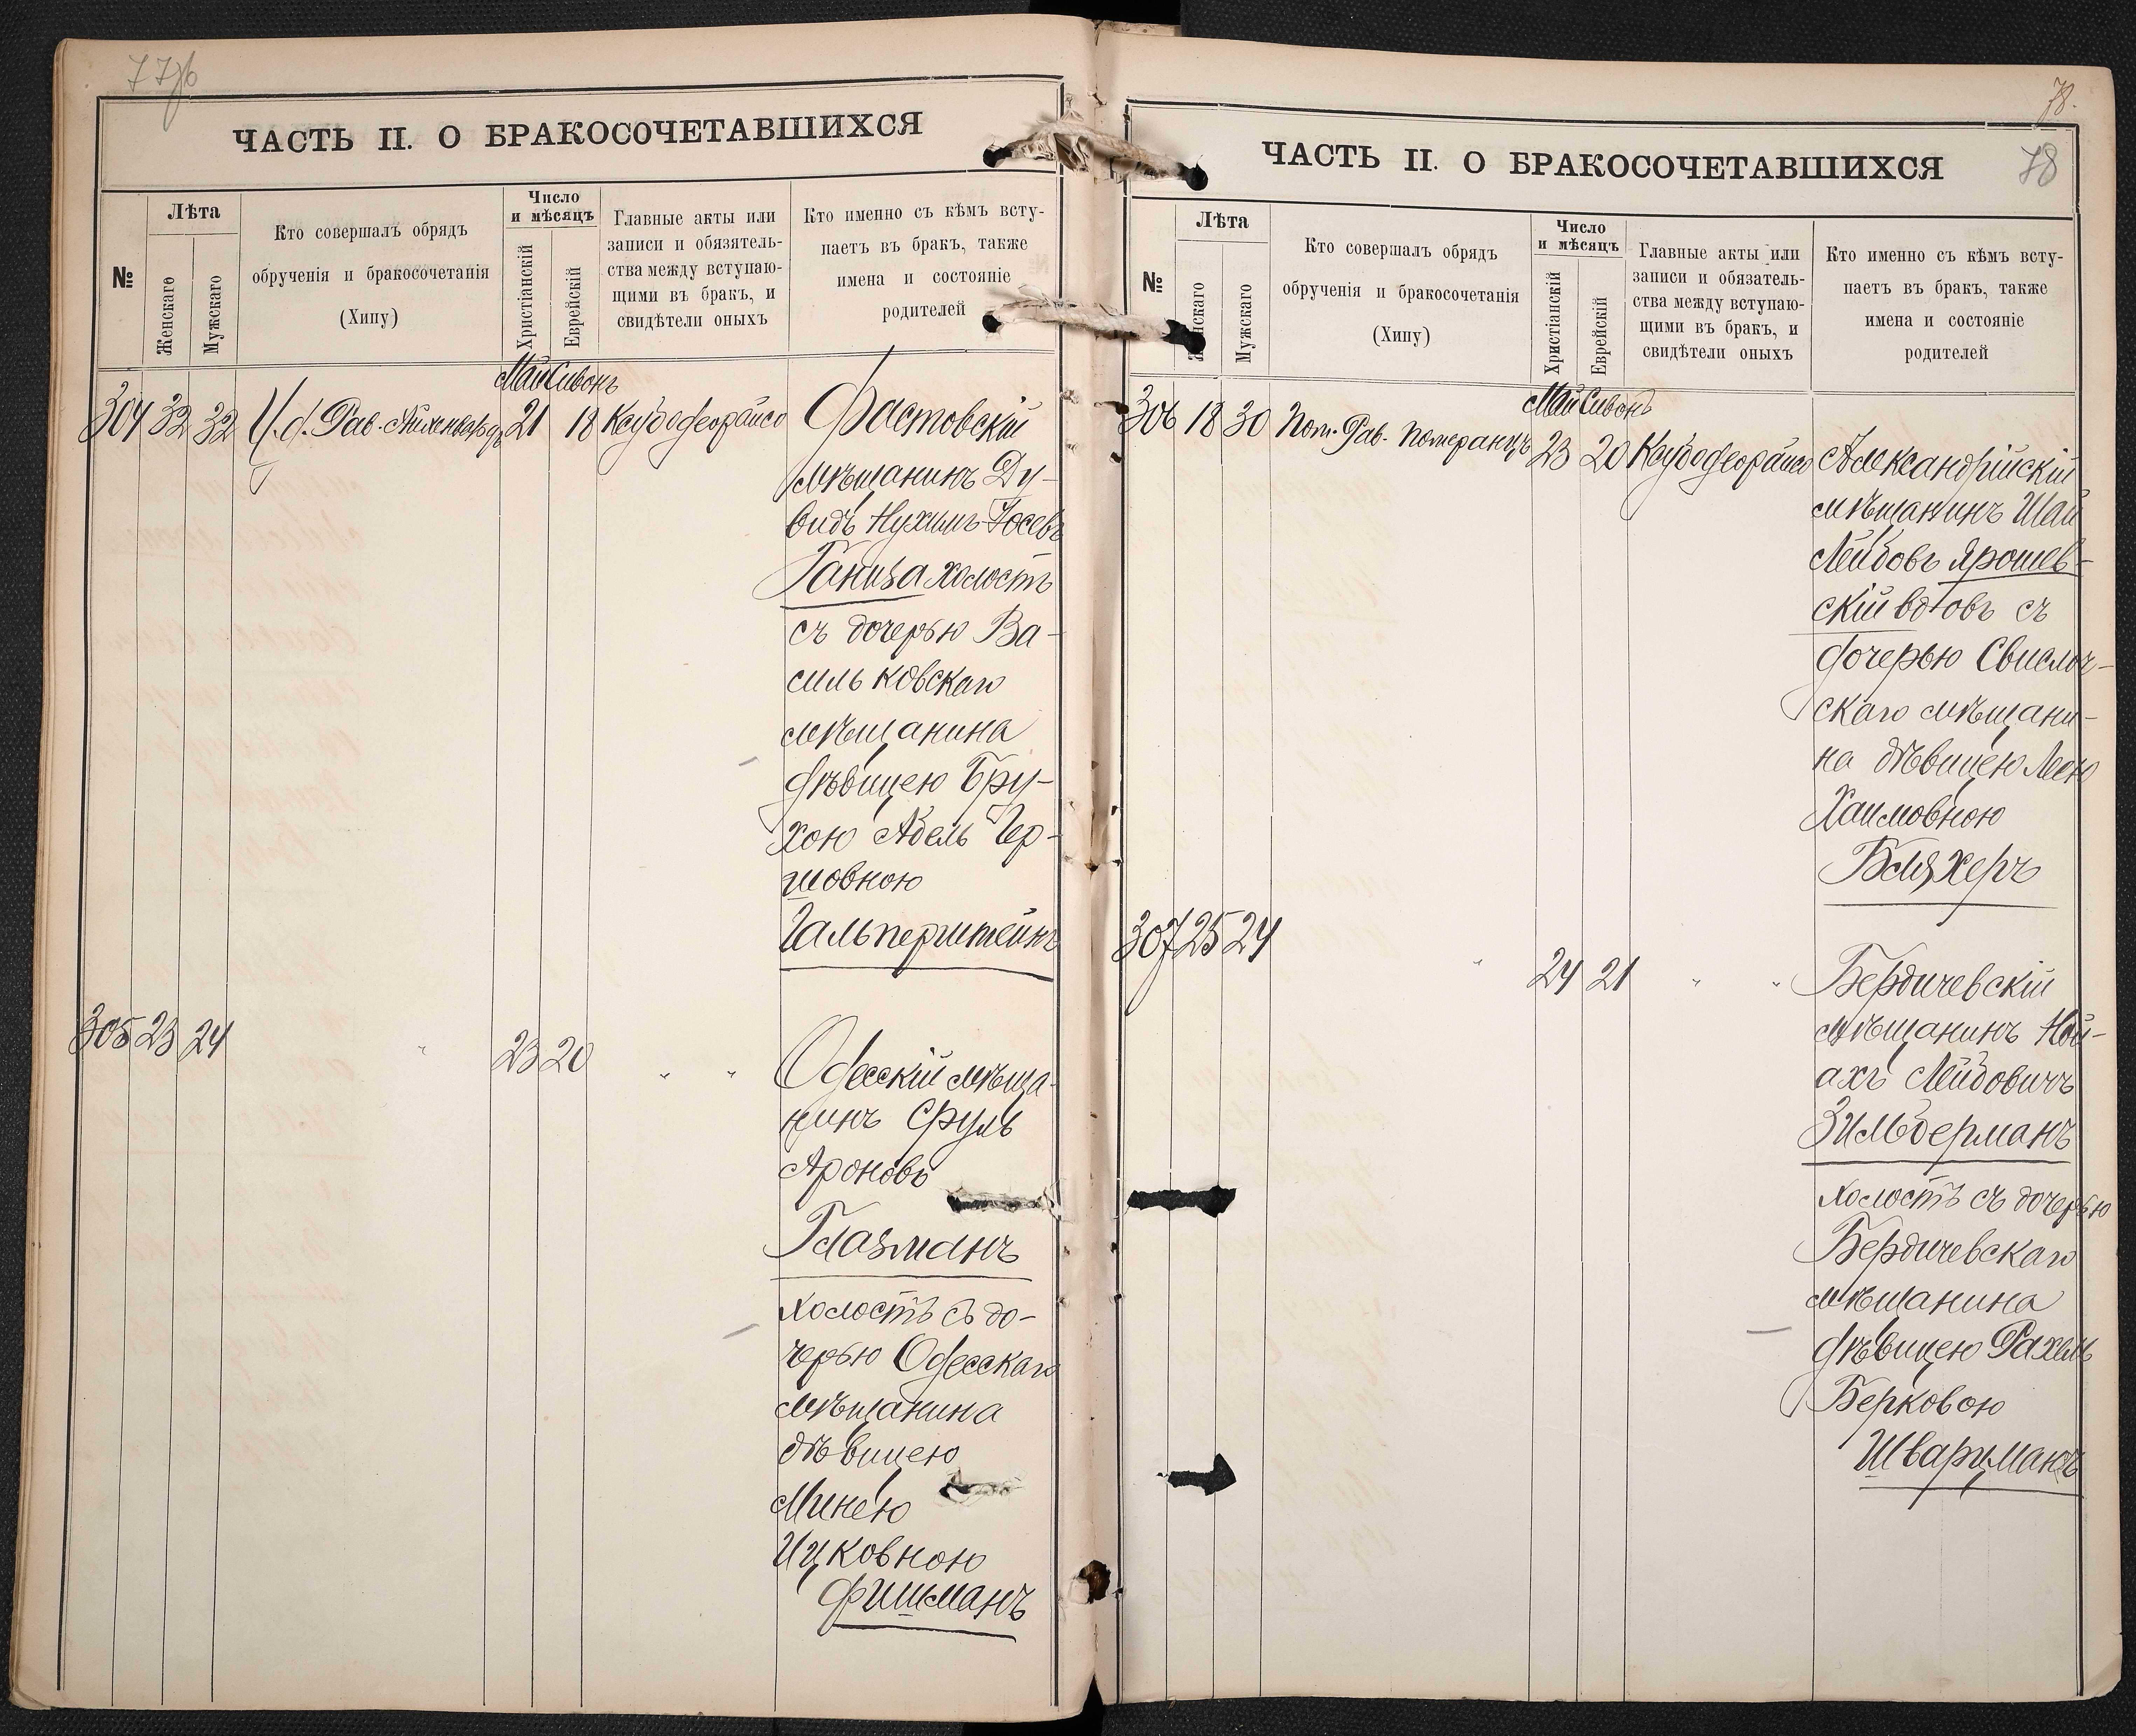 77об
ЧАСТЬ II. О БРАКОСОЧЕТАВШИХСЯ
№
Лѣта
Женскаго
Мужскаго
Кто совершалъ обрядъ
обрученія и бракосочетанія
(Хипу)
Число
и мѣсяцъ
Христіанскій
Еврейскій
Главные акты или
записи и обязятель-
ства между вступаю-
щими въ бракъ, и
свидѣтели оныхъ
Кто именно съ кѣмъ всту-
паетъ въ бракъ, также
имена и состояніе
родителей
Май Сивонъ
304 32 32 И.д. Рав. Айхенвальдъ 21 18 Ксубодеорайсо Фастовскій
мѣщанинъ Ду-
видъ Нухимъ Іосевъ
Ганиза холостъ
съ дочерью Ва-
сильковскаго
мѣщанина
дѣвицею Бру-
хою Адель Гер-
шовною
Гальперштейнъ
305 23 24 " 23 20 " " Одесскій мѣща-
нинъ Сруль
Ароновъ
Глазманъ
холостъ съ до-
черью Одесскаго
мѣщанина
дѣвицею
Минею
Ицковною
Фишманъ
78.
78
ЧАСТЬ II. О БРАКОСОЧЕТАВШИХСЯ
№
Лѣта
Женскаго
Мужскаго
Кто совершалъ обрядъ
обрученія и бракосочетанія
(Хипу)
Число
и мѣсяцъ
Христіанскій
Еврейскій
Главные акты или
записи и обязатель-
ства между вступаю-
щими въ бракъ, и
свидѣтели оныхъ
Кто именно съ кѣмъ всту-
паетъ въ бракъ, также
имена и состояніе
родителей
Май Сивонъ
306 18 30 Пом. Рав. Померанцъ 23 20 Ксубодеорайсо Александрійскій
мѣщанинъ Шая
Лейбовъ Ярошев-
скій вдовъ съ
дочерью Свислоч-
скаго мѣщани-
на дѣвицею Леею
Хаимовною
Бляхеръ
307 25 24 " 24 21 " " Бердичевскій
мѣщанинъ Ной-
ахъ Лейбовичъ
Зильберманъ
холостъ съ дочерью
Бердичевскаго
мѣщанина
дѣвицею Рахель
Берковою
Шварцманъ